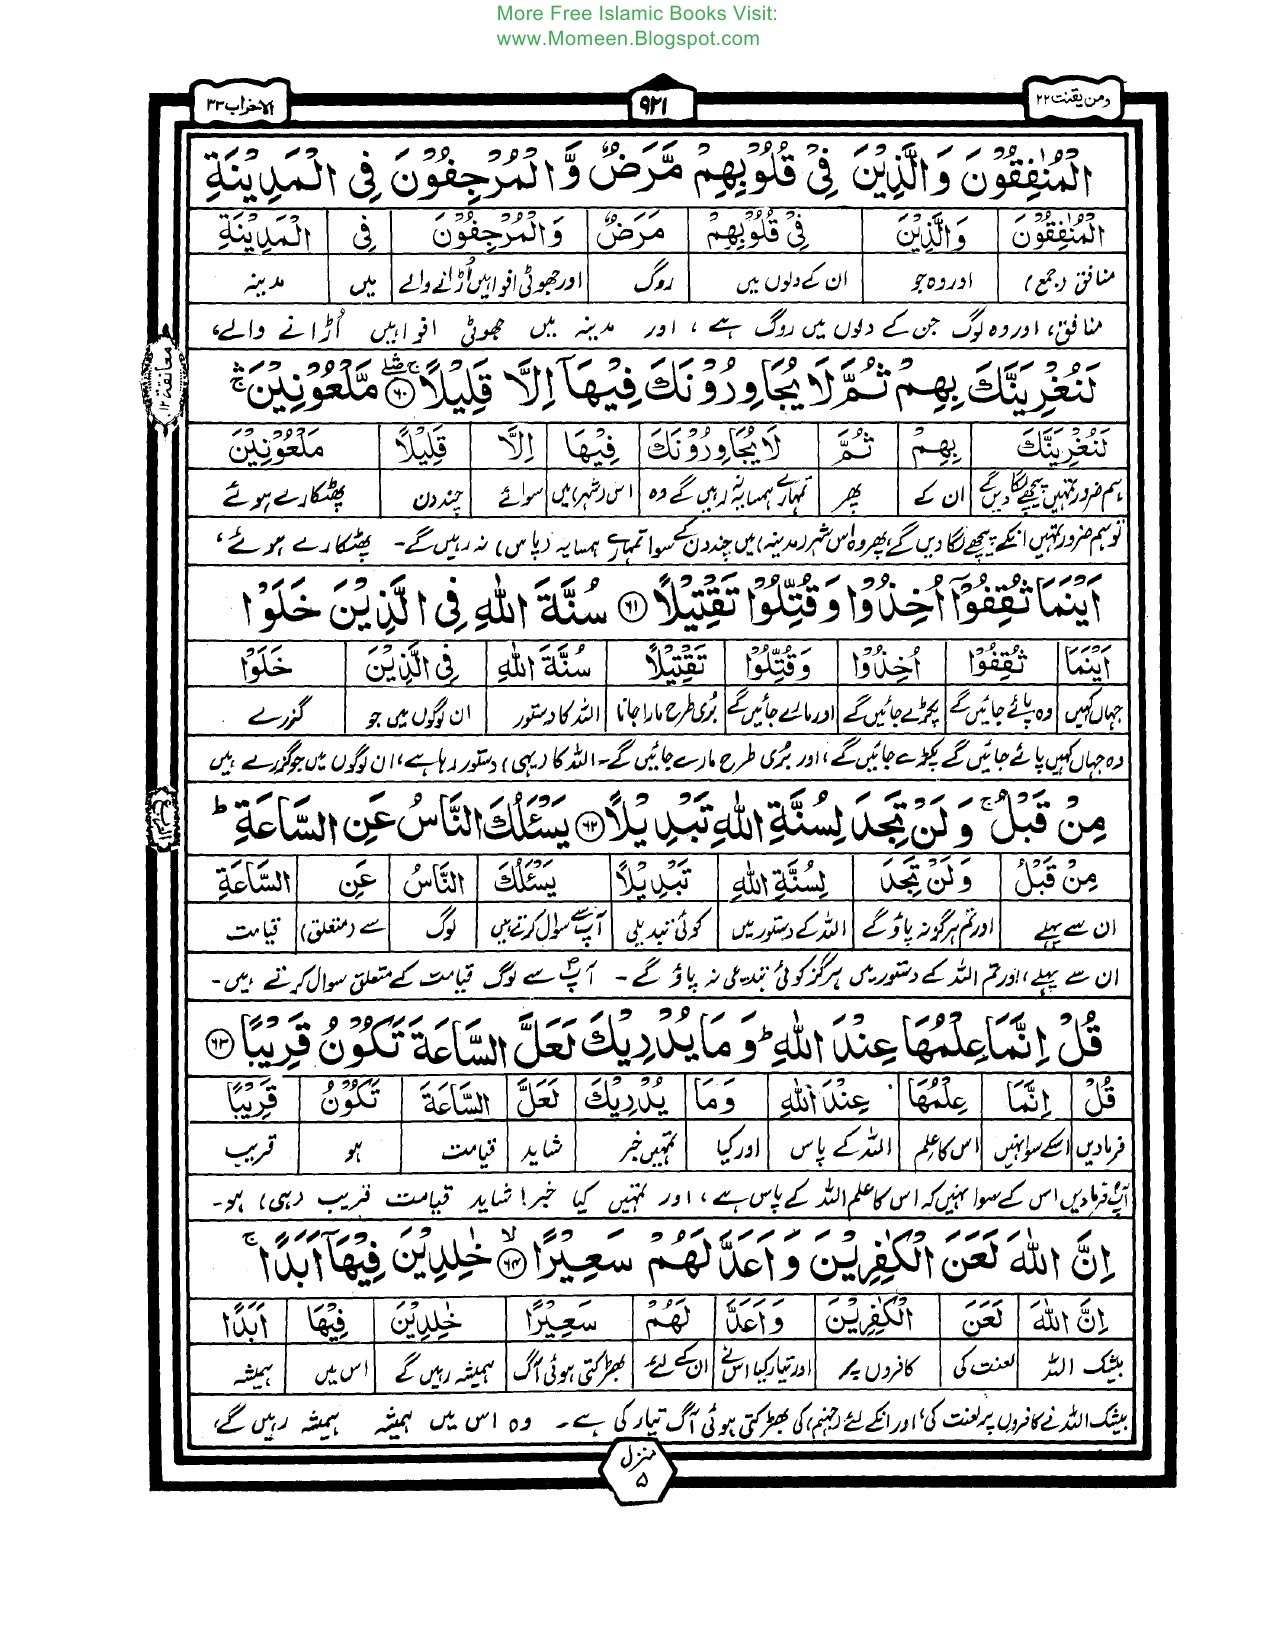 More Free Islamic Books Visit:
www.Momeen.Blogspot.com
ومن یقنت ۲۲
۹۲۱
الاحزاب ۳۳
الْمُنٰفِقُوْنَ وَالَّذِیْنَ فِیْ قُلُوْبِهِمْ مَّرَضٌ وَّالْمُرْجِفُوْنَ فِی الْمَدِیْنَةِ
الْمُنٰفِقُوْنَ وَالَّذِیْنَ فِیْ قُلُوْبِهِمْ مَرَضٌ وَالْمُرْجِفُوْنَ فِی الْمَدِیْنَةِ
منافق (جمع) اور وہ جو ان کے دلوں میں روگ اور جھوٹی افواہیں اُڑانے والے میں مدینہ
منافق، اور وہ لوگ جن کے دلوں میں روگ ہے، اور مدینہ میں جھوٹی افواہیں اُڑانے والے،
معانقة ۱۲
لَنُغْرِیَنَّكَ بِهِمْ ثُمَّ لَا یُجَاوِرُوْنَكَ فِیْهَاۤ اِلَّا قَلِیْلًا ۶۰ مَّلْعُوْنِیْنَ
لَنُغْرِیَنَّكَ بِهِمْ ثُمَّ لَا یُجَاوِرُوْنَكَ فِیْهَا اِلَّا قَلِیْلًا مَلْعُوْنِیْنَ
ہم ضرور تمہیں پیچھے لگا دیں گے ان کے پھر تمہارے ہمسایہ نہ رہیں گے وہ اس (شہر) میں سوائے چند دن پھٹکارے ہوئے
تو ہم ضرور تمہیں انکے پیچھے لگا دیں گے، پھر وہ اس شہر (مدینہ) میں چند دن کے سوا تمہارے ہمسایہ (پاس) نہ رہیں گے۔ پھٹکارے ہوئے،
اَیْنَمَا ثُقِفُوْۤا اُخِذُوْا وَقُتِّلُوْا تَقْتِیْلًا ۶۱ سُنَّةَ اللّٰهِ فِی الَّذِیْنَ خَلَوْا
اَیْنَمَا ثُقِفُوْا اُخِذُوْا وَقُتِّلُوْا تَقْتِیْلًا سُنَّةَ اللّٰهِ فِی الَّذِیْنَ خَلَوْا
جہاں کہیں وہ پائے جائیں گے پکڑے جائیں گے اور مارے جائیں گے بُری طرح مارا جانا اللہ کا دستور ان لوگوں میں جو گزرے
وہ جہاں کہیں پائے جائیں گے پکڑے جائیں گے، اور بُری طرح مارے جائیں گے۔ اللہ کا (یہی) دستور رہا ہے، ان لوگوں میں جو گزرے ہیں
مِنْ قَبْلُ ۚ وَلَنْ تَجِدَ لِسُنَّةِ اللّٰهِ تَبْدِیْلًا ۶۲ یَسْـَٔلُكَ النَّاسُ عَنِ السَّاعَةِ ؕ
مِنْ قَبْلُ وَلَنْ تَجِدَ لِسُنَّةِ اللّٰهِ تَبْدِیْلًا یَسْـَٔلُكَ النَّاسُ عَنِ السَّاعَةِ
ان سے پہلے اور تم ہرگز نہ پاؤ گے اللہ کے دستور میں کوئی تبدیلی آپؐ سے سوال کرتے ہیں لوگ سے (متعلق) قیامت
ان سے پہلے، اور تم اللہ کے دستور میں ہرگز کوئی تبدیلی نہ پاؤ گے۔ آپؐ سے لوگ قیامت کے متعلق سوال کرتے ہیں۔
قُلْ اِنَّمَا عِلْمُهَا عِنْدَ اللّٰهِ ؕ وَمَا یُدْرِیْكَ لَعَلَّ السَّاعَةَ تَكُوْنُ قَرِیْبًا ۶۳
قُلْ اِنَّمَا عِلْمُهَا عِنْدَ اللّٰهِ وَمَا یُدْرِیْكَ لَعَلَّ السَّاعَةَ تَكُوْنُ قَرِیْبًا
فرمادیں اسکے سوا نہیں اس کا علم اللہ کے پاس اور کیا تمہیں خبر شاید قیامت ہو قریب
آپؐ فرمادیں اس کے سوا نہیں کہ اس کا علم اللہ کے پاس ہے، اور تمہیں کیا خبر! شاید قیامت قریب (ہی) ہو۔
اِنَّ اللّٰهَ لَعَنَ الْكٰفِرِیْنَ وَاَعَدَّ لَهُمْ سَعِیْرًا ۶۴ خٰلِدِیْنَ فِیْهَاۤ اَبَدًا ۚ
اِنَّ اللّٰهَ لَعَنَ الْكٰفِرِیْنَ وَاَعَدَّ لَهُمْ سَعِیْرًا خٰلِدِیْنَ فِیْهَا اَبَدًا
بیشک اللہ لعنت کی کافروں پر اور تیار کیا اس نے ان کے لئے بھڑکتی ہوئی آگ ہمیشہ رہیں گے اس میں ہمیشہ
بیشک اللہ نے کافروں پر لعنت کی، اور انکے لئے (جہنم) کی بھڑکتی ہوئی آگ تیار کی ہے۔ وہ اس میں ہمیشہ ہمیشہ رہیں گے،
منزل ۵